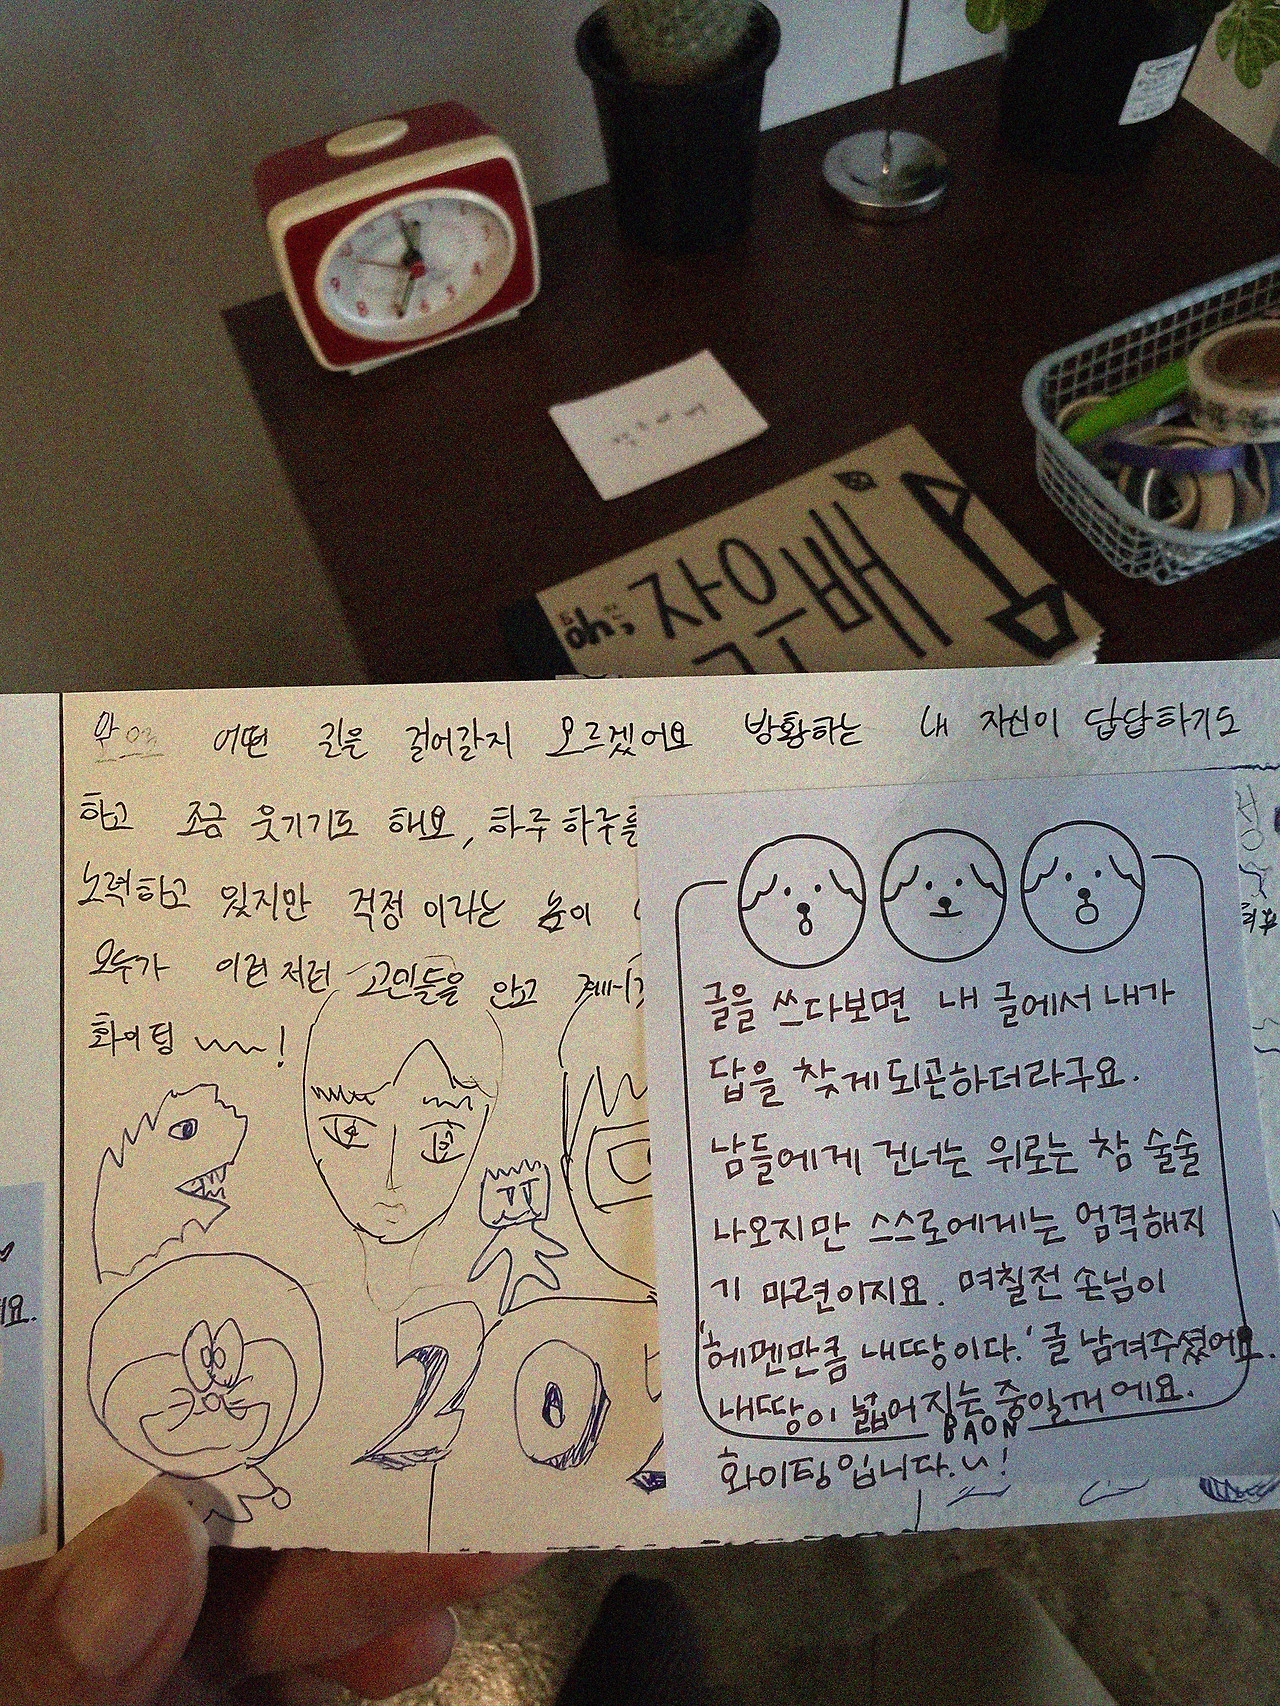 oh;
자유
배
앞으로 어떤 길을 걸어갈지 모르겠어요 방황하는 내 자신이 답답하기도
하고 조금 웃기기도 해요, 하루 하루를
노력하고 있지만 걱정이라는 놈이
모두가 이런 저런 고민들을 안고
화이팅 ~~~!
20
글을 쓰다보면 내 글에서 내가
답을 찾게되곤하더라구요.
남들에게 건너는 위로는 참 술술
나오지만 스스로에게는 엄격해지
기 마련이지요. 며칠전 손님이
'헤멘만큼 내땅이다.' 글 남겨주셨어요.
내땅이 넓어 지는 중일꺼 에요.
BAON
화이팅입니다.~!